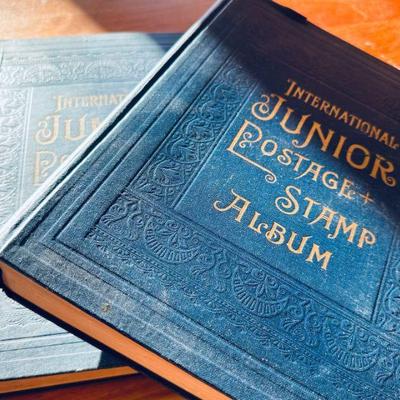 International
Junior
Postage +
Stamp
Album
International
Junior
Postage